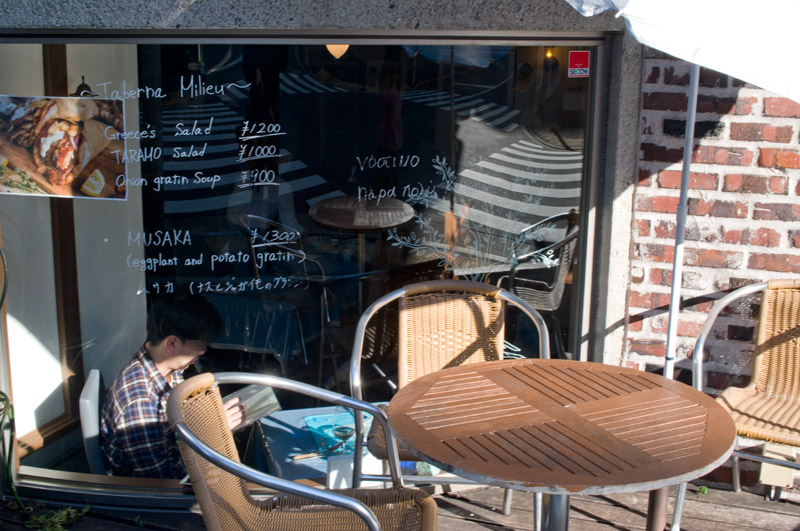 ~Taberna Milieu~
Greece's Salad ¥1200
TARAMO Salad ¥1000
Onion gratin Soup ¥900
MUSAKA ¥1300
(eggplant and potato gratin)
ムサカ (ナスとジャガ芋のグラタン)
SECOM